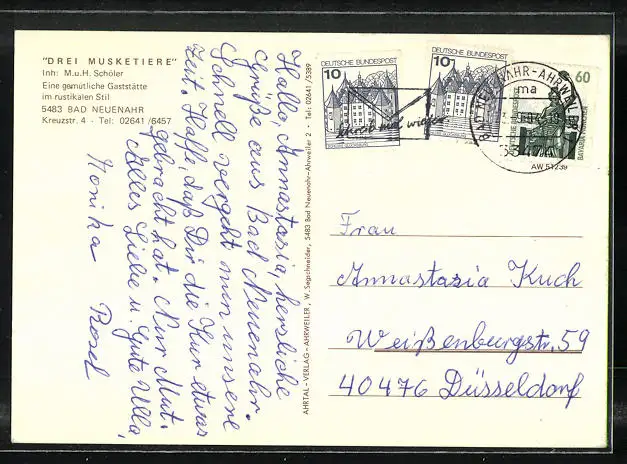 "DREI MUSKETIERE"
Inh: M.u.H. Schöler
Eine gemütliche Gaststätte
im rustikalen Stil
5483 BAD NEUENAHR
Kreuzstr. 4 - Tel: 02641/6457
Hallo, Annastasia, herzliche
Grüße aus Bad Neuenahr.
Schnell vergeht nun unsere
Zeit. Hoffe, daß Dir die Kur etwas
gebracht hat. Nur Mut.
Alles Liebe u. Gute Ulla,
Monika
AHRTAL-VERLAG-AHRWEILER, W. Segschneider, 5483 Bad Neuenahr-Ahrweiler 2 - Tel: 02641/5389
DEUTSCHE BUNDESPOST
10
DEUTSCHE BUNDESPOST
10
schreib mal wieder
BAD NEUENAHR-AHRWEILER
ma
60
BAVARIA MÜNCHEN
AW 51239
Frau
Annastasia Kuch
Weißenburgstr. 59
40476 Düsseldorf